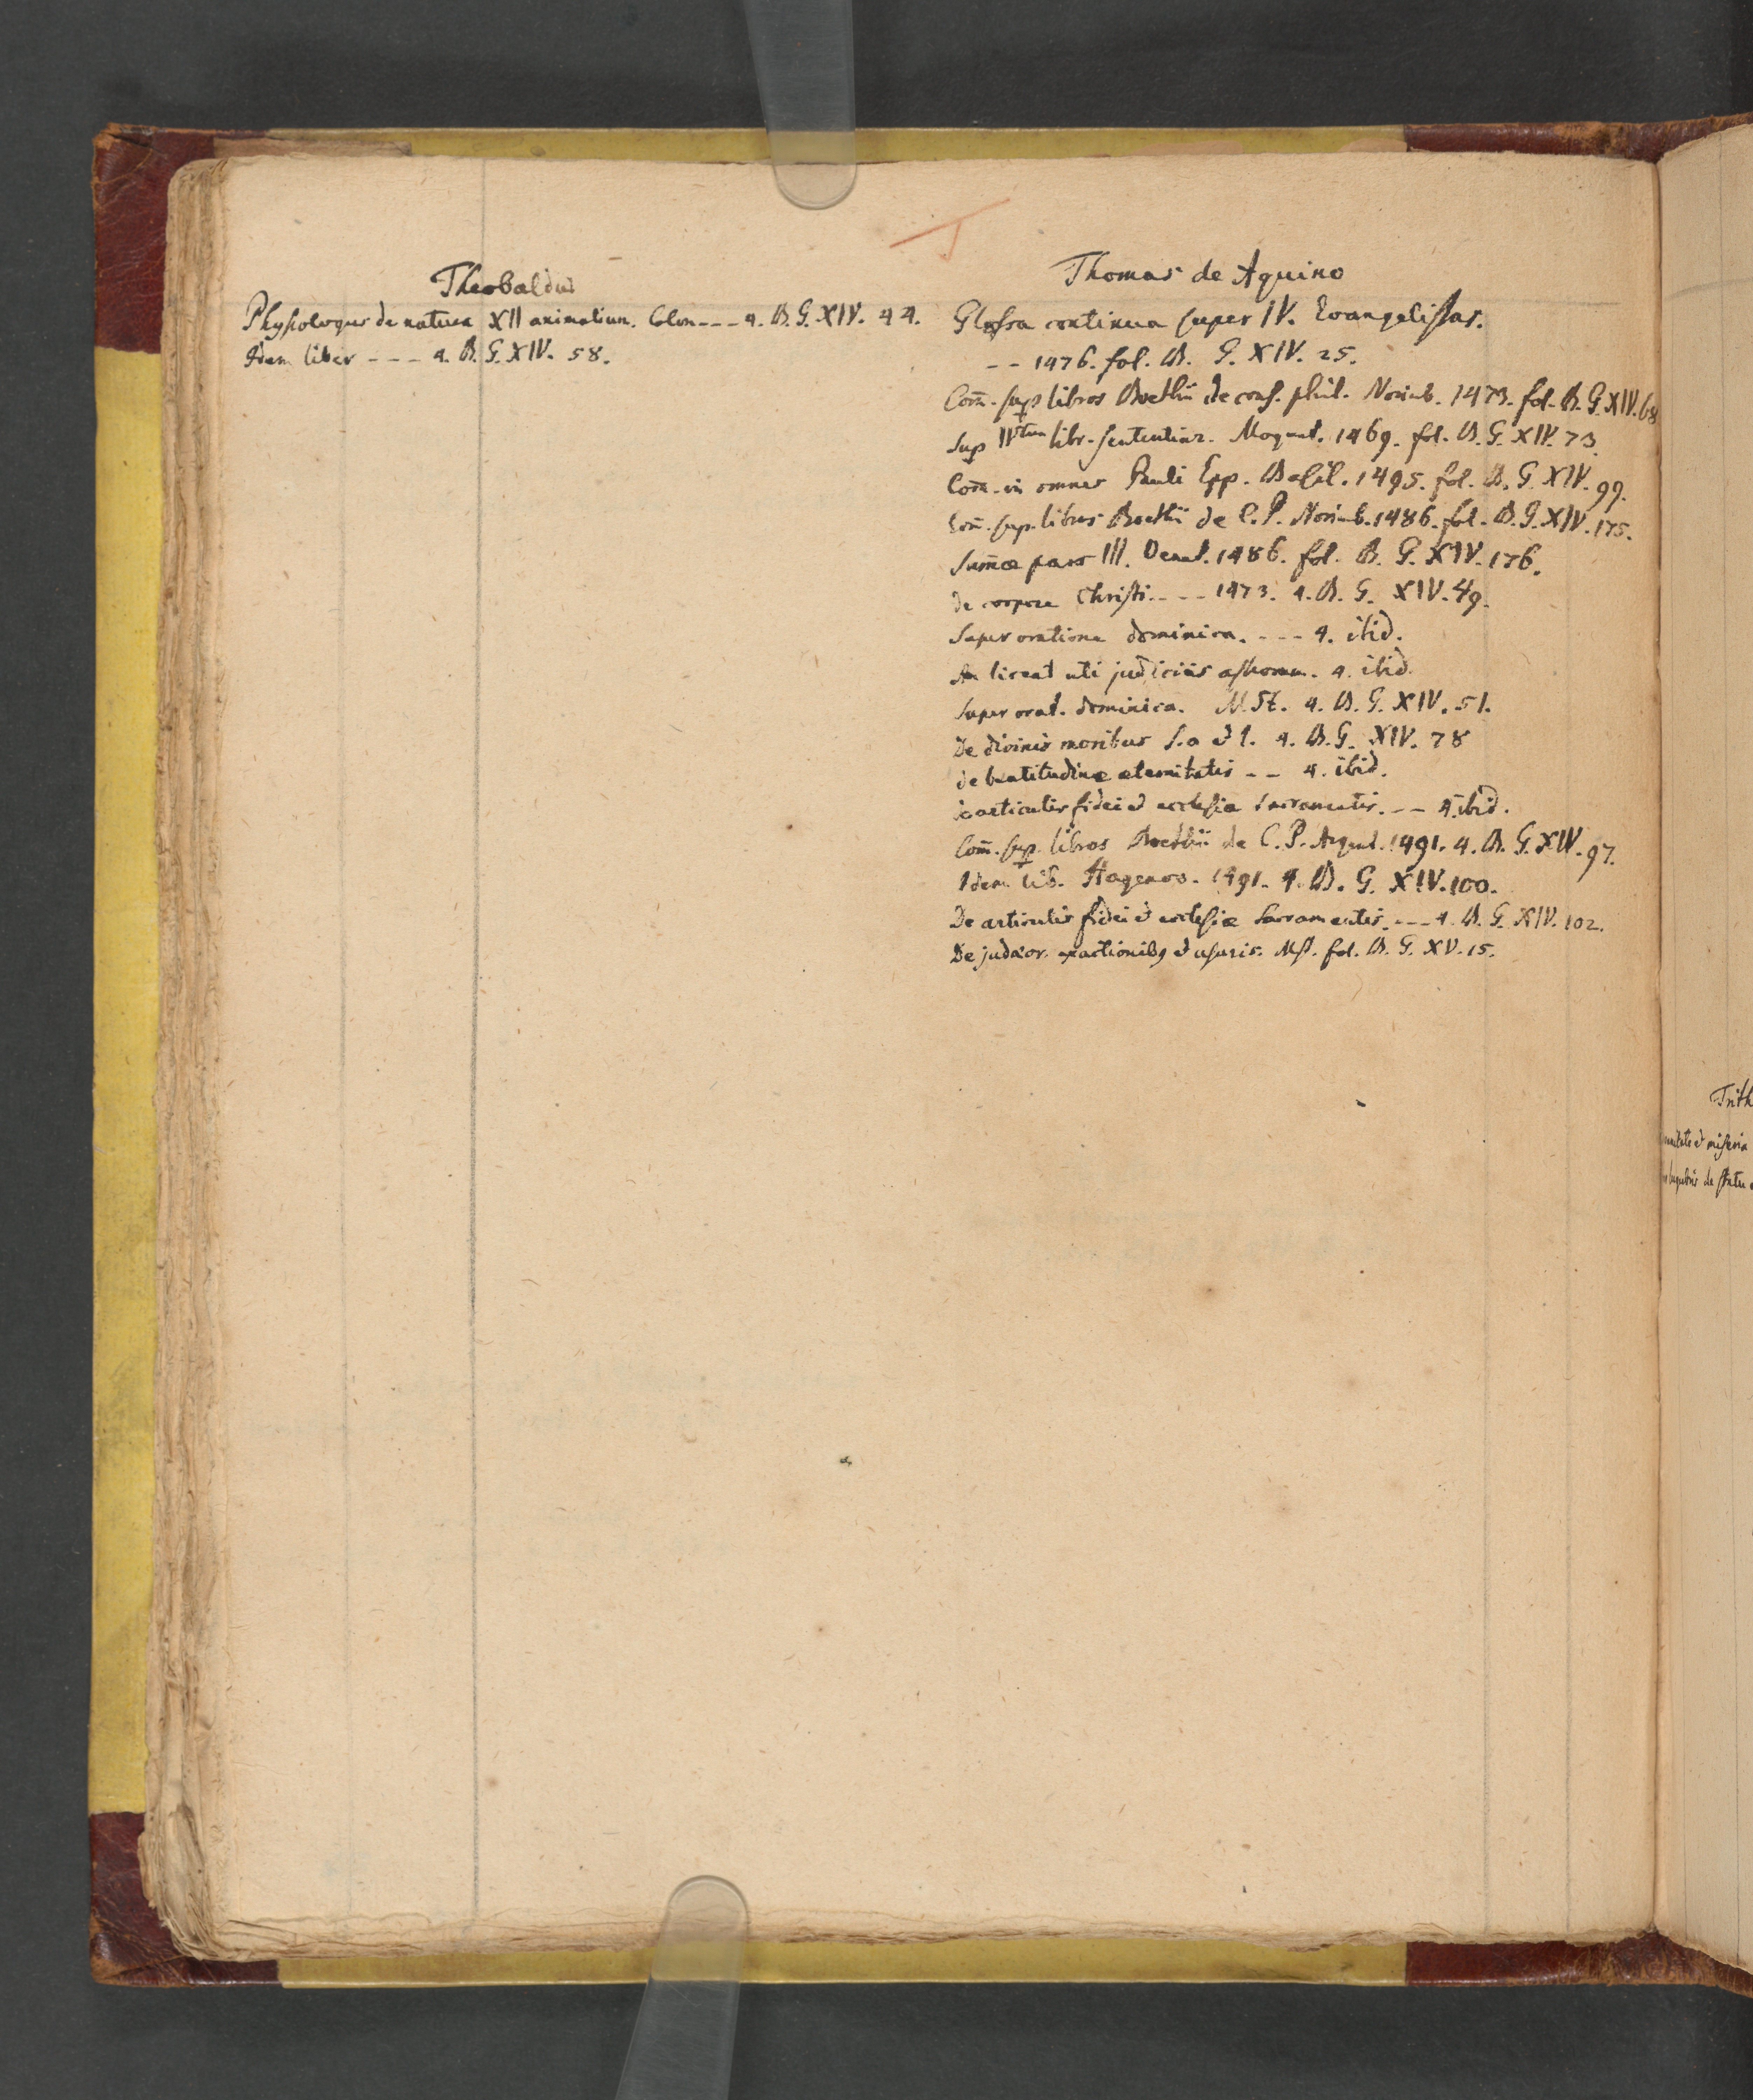 Theobaldus
Physiologus de natura XII animalium. Colon --- 4. B. G. XIV. 44.
Idem liber --- 4. B. G. XIV. 58.
Thomas de Aquino
Glossa continua super IV. Evangelistas.
-- 1476. fol. B. G. XIV. 25.
Com̄. sup libros Boethii de cons. phil. Norimb. 1473. fol. B. G. XIV. 68
Sup IVtum libr. sententiar. Mogunt. 1469. fol. B. G. XIV. 73.
Com̄. in omnes Pauli Epp. Basil. 1495. fol. B. G. XIV. 99.
Com̄. sup. libros Boethii de C. P. Norimb. 1486. fol. B. G. XIV. 175.
Sum̄æ pars III. Venet. 1486. fol. B. G. XIV. 176.
de corpore Christi --- 1473. 4. B. G. XIV. 49.
Super oratione dominica. --- 4. ibid.
An liceat uti judiciis astrorum. 4. ibid.
Super orat. dominica. MSt. 4. B. G. XIV. 51.
De divinis moribus s. a et l. 4. B. G. XIV. 78
de beatitudine æternitatis -- 4. ibid.
articulis fidei et ecclesiæ sacramentis. -- 4. ibid.
Com̄. sup. libros Boethii de C. P. Argent. 1491. 4. B. G. XIV. 97.
Idem lib. Hagenoo. 1491. 4. B. G. XIV. 100.
De articulis fidei et ecclesiæ Sacramentis. --- 4. B. G. XIV. 102.
De judæor. exactionibq et usuris. Mst. fol. B. G. XV. 15.
Trith
et miseria
de statu